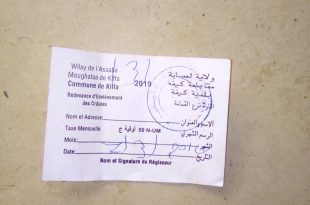 Wilay de l'Assaba ولاية العصابة
Moughataa de Kiffa مقاطعة كيفة
Commune de Kiffa 2019 بلدية كيفة
Redevance d'Enlèvement
des Ordures
Nom et Adresse: الاسم والعنوان
Taxe Mensuelle: 50 N-UM أوقية ج الرسم الشهري
Mois: الشهر
Date: التاريخ
Nom et Signature du Régisseur